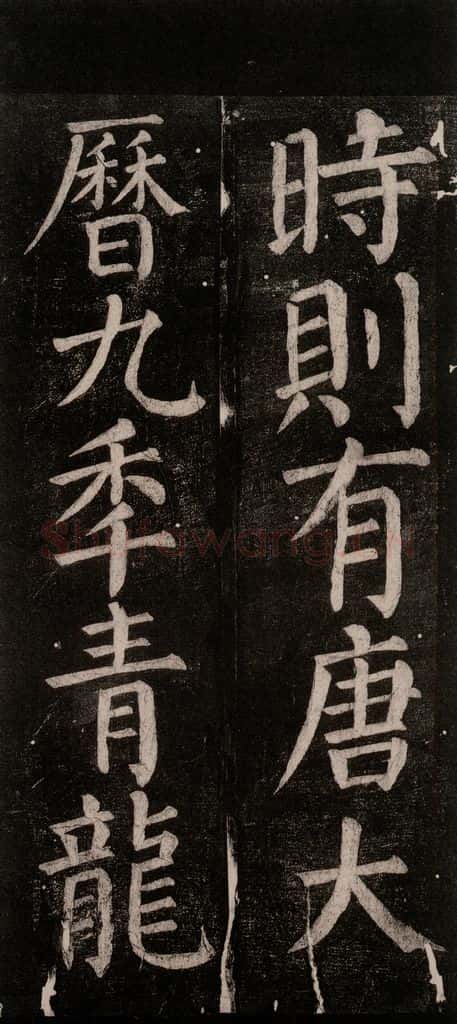 時則有唐大
曆九秊青龍
Shufawang.CN